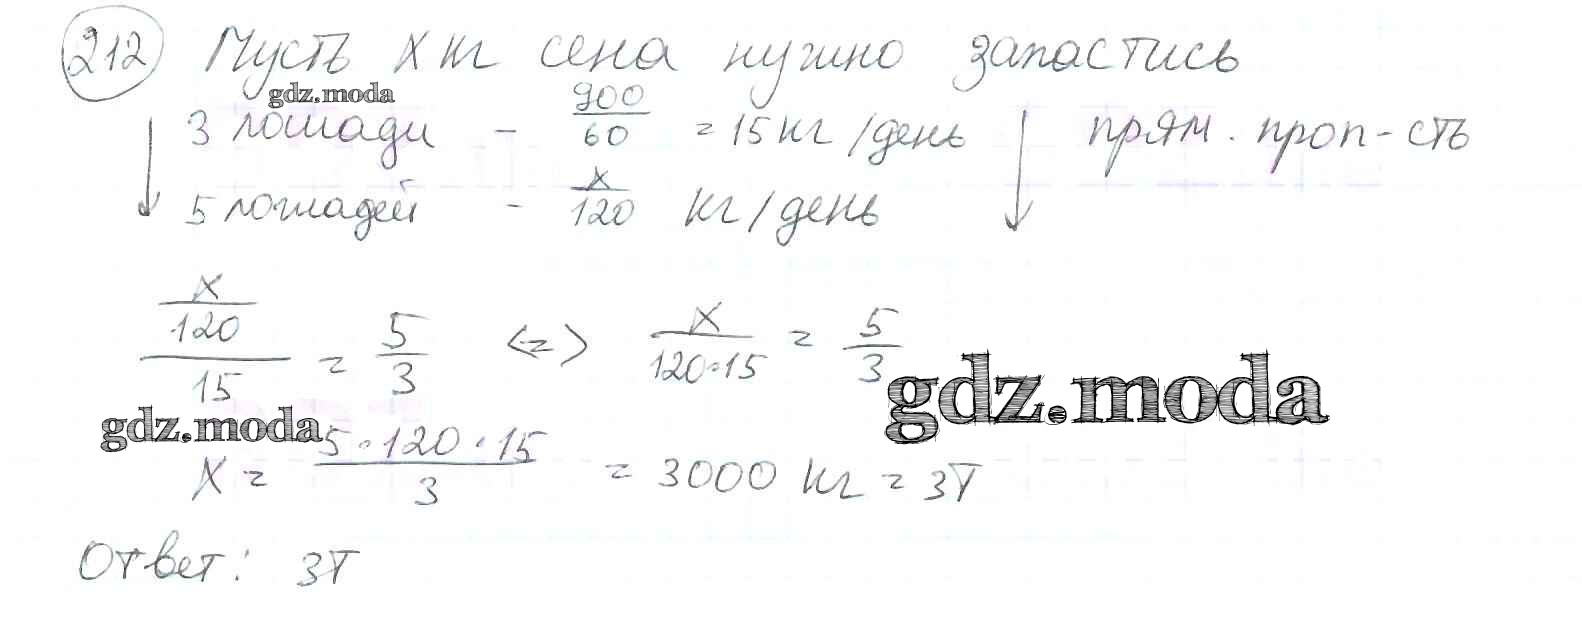 212 Пусть x кг сена нужно запастись
gdz.moda
3 лошади - 900/60 = 15 кг/день прям. проп-сть
5 лошадей - x/120 кг/день
x/120 / 15 = 5/3 <=> x/120·15 = 5/3
gdz.moda
gdz.moda
x = 5·120·15/3 = 3000 кг = 3т
Ответ: 3т